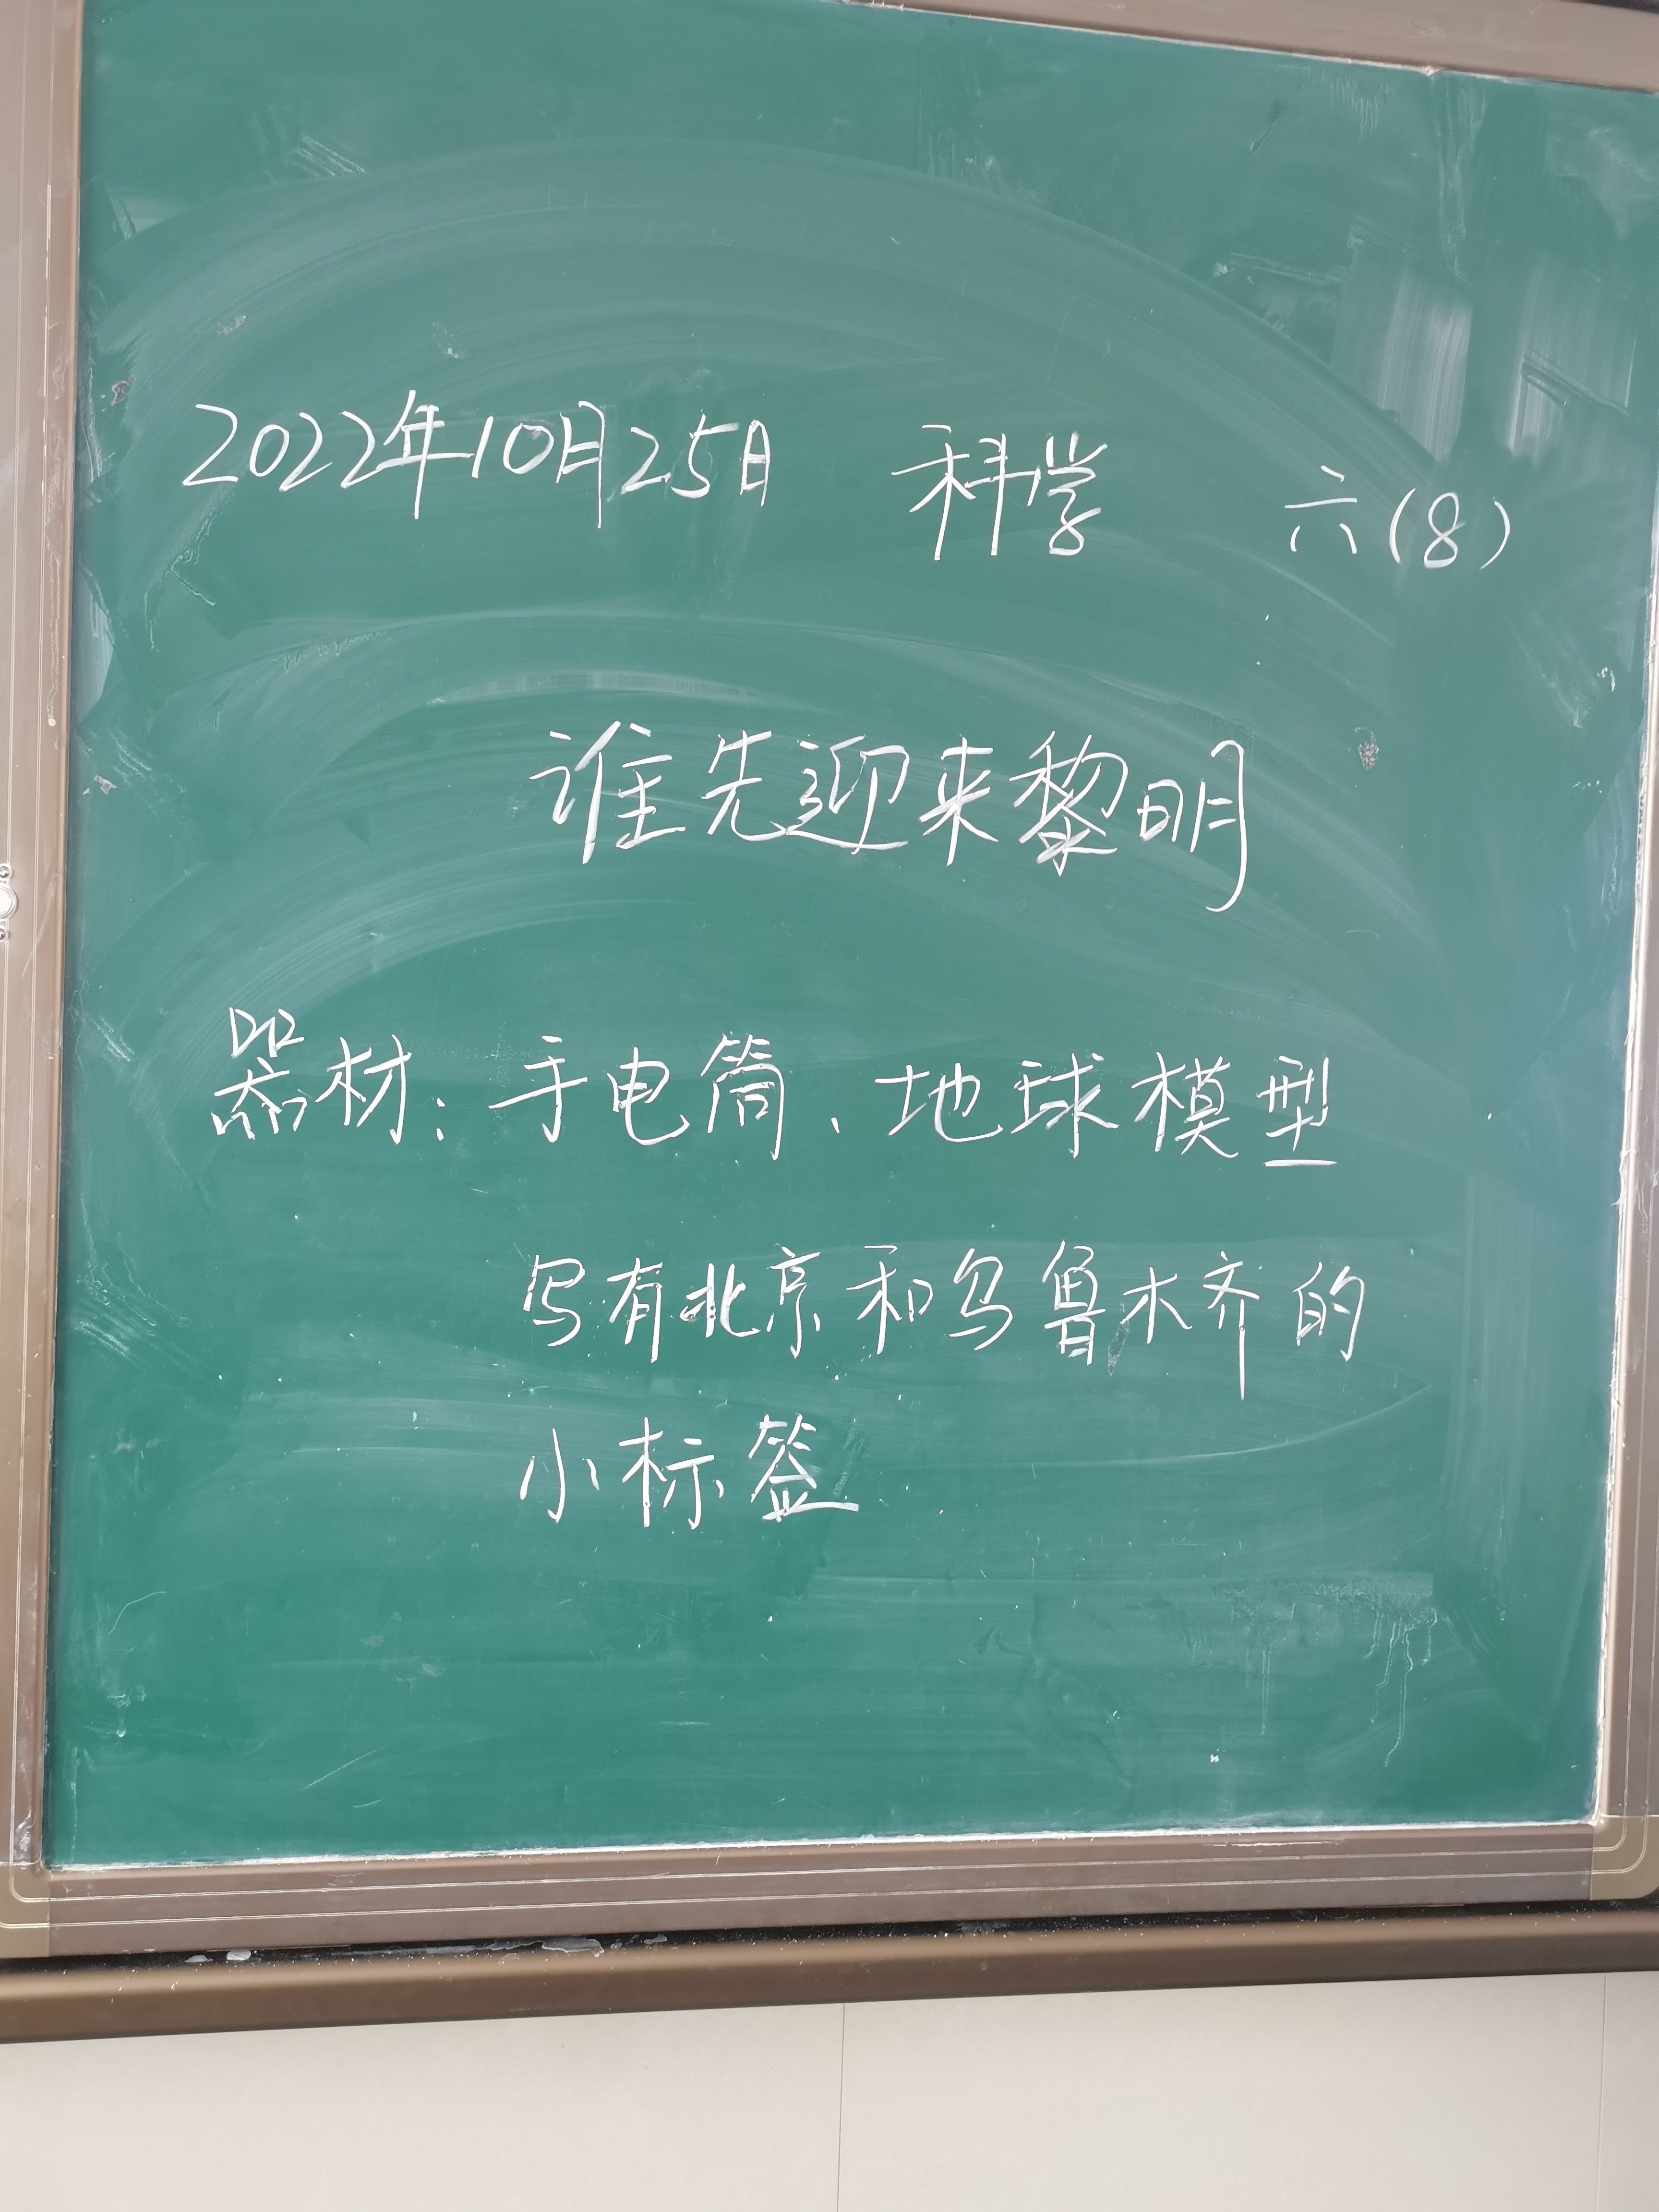 2022年10月25日 科学 六(8)
谁先迎来黎明
器材:手电筒、地球模型
写有北京和乌鲁木齐的
小标签